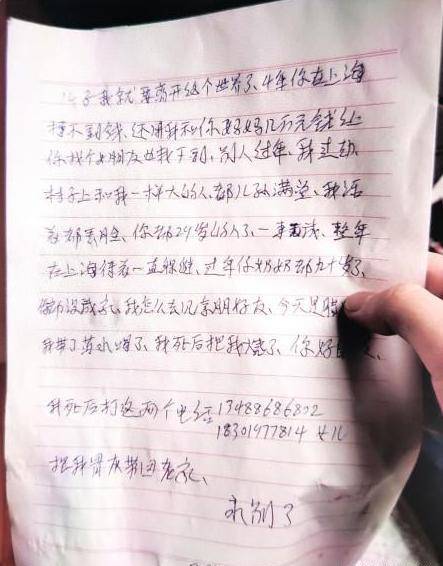 儿子我就要离开这个世界了、4年你在上海
挣不到钱、还用我和你妈妈几万元钱、让
你找个女朋友也找不到、别人过年、我过劫
村子上和我一样大的人、都儿孙满堂、我活
着都丢脸、你都29岁的人了、一事无成、整年
在上海待着一直躲避、过年你奶奶都九十岁了、
你都没成家、我怎么去见亲朋好友、今天是
我带了药水喝了、我死后把我烧了、你好
我死后打这两个电话 13488686802
18301977814 女儿
把我骨灰带回老家、
永别了